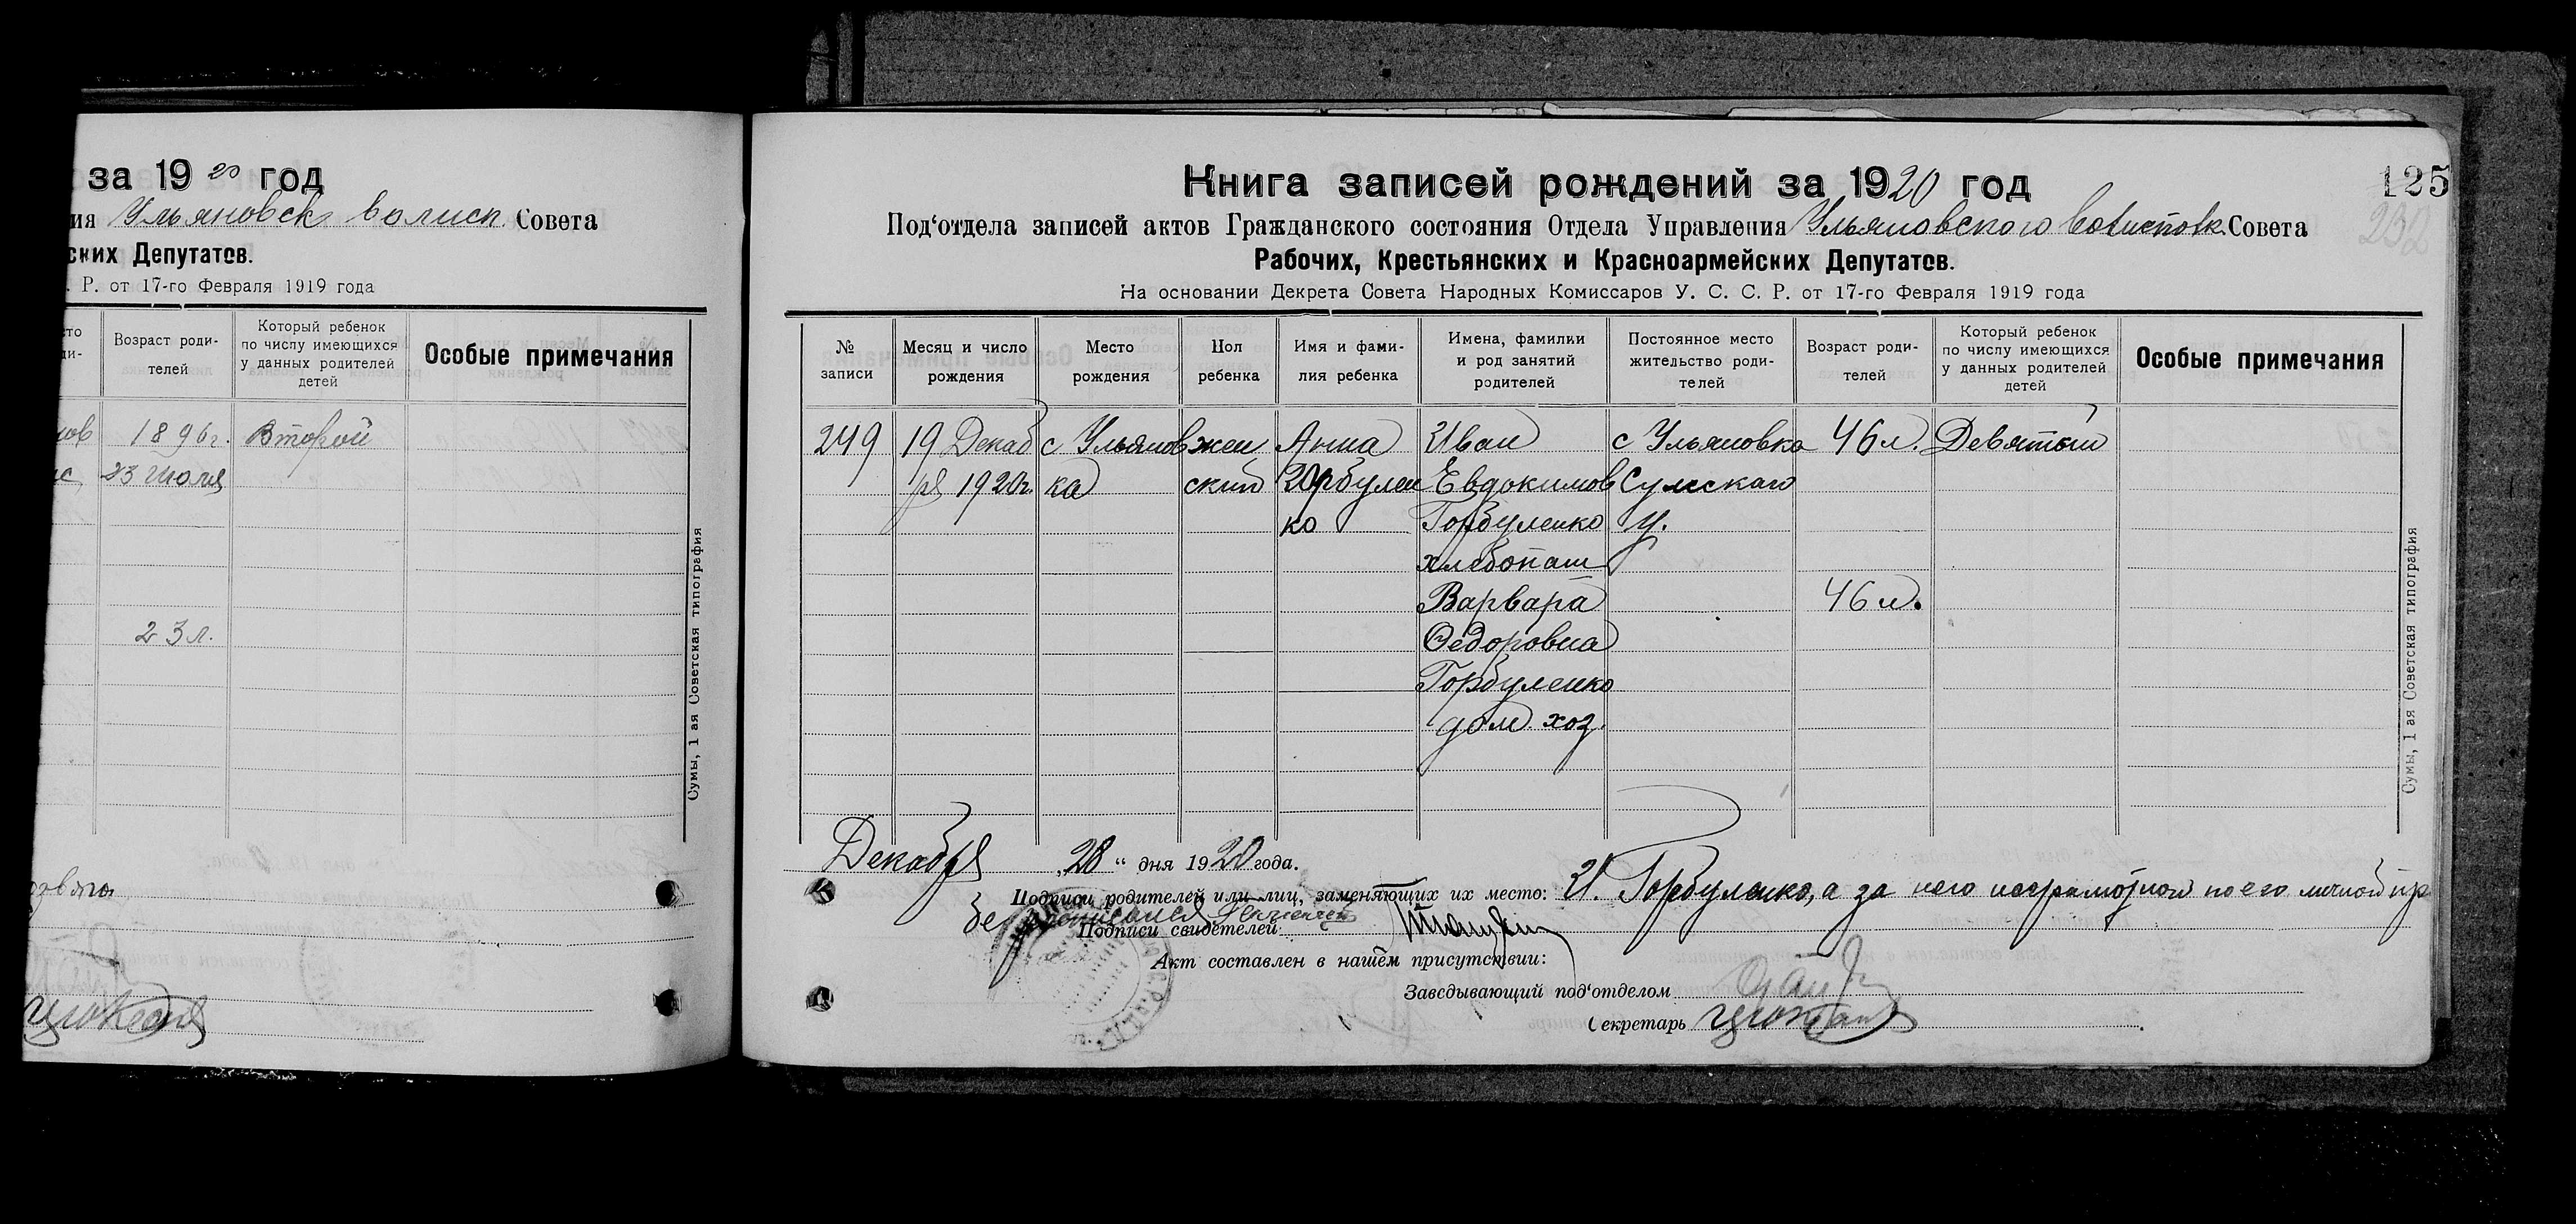 за 1920 год
ия Ульяновск волисп. Совета
ских Депутатов.
. Р. от 17-го Февраля 1919 года
сто
ди-
Возраст роди-
телей
Который ребенок
по числу имеющихся
у данных родителей
детей
Особые примечания
ков 1896г. Второй
23 Июля
23л.
Сумы, 1 ая Советская типография
Книга записей рождений за 1920 год
125
232
Под‘отдела записей актов Гражданского состояния Отдела Управления Ульяновского Совета
Рабочих, Крестьянских и Красноармейских Депутатов.
На основании Декрета Совета Народных Комиссаров У. С. С. Р. от 17-го Февраля 1919 года
№
записи
Месяц и число
рождения
Место
рождения
Пол
ребенка
Имя и фами-
лия ребенка
Имена, фамилки
и род занятий
родителей
Постоянное место
жительство роди-
телей
Возраст роди-
телей
Который ребенок
по числу имеющихся
у данных родителей
детей
Особые примечания
249 19 Декаб с Ульянов жен Анна Иван с Ульяновка 46л. Девятый
ря 1920г. ка ский Горбулен Евдокимов Сумскаго
ко Горбуленко у.
хлебопаш
Варвара 46 л.
Федоровна
Горбуленко
дом. хоз.
Сумы, 1 ая Советская типография
Декабря „28“ дня 1920 года.
Подписи родителей или лиц, заменяющих их место: И. Горбуленко, а за него неграмотнои по его личной пр
Подписи свидетелей
Акт составлен в нашем присутствии:
Заведывающий под‘отделом
Секретарь